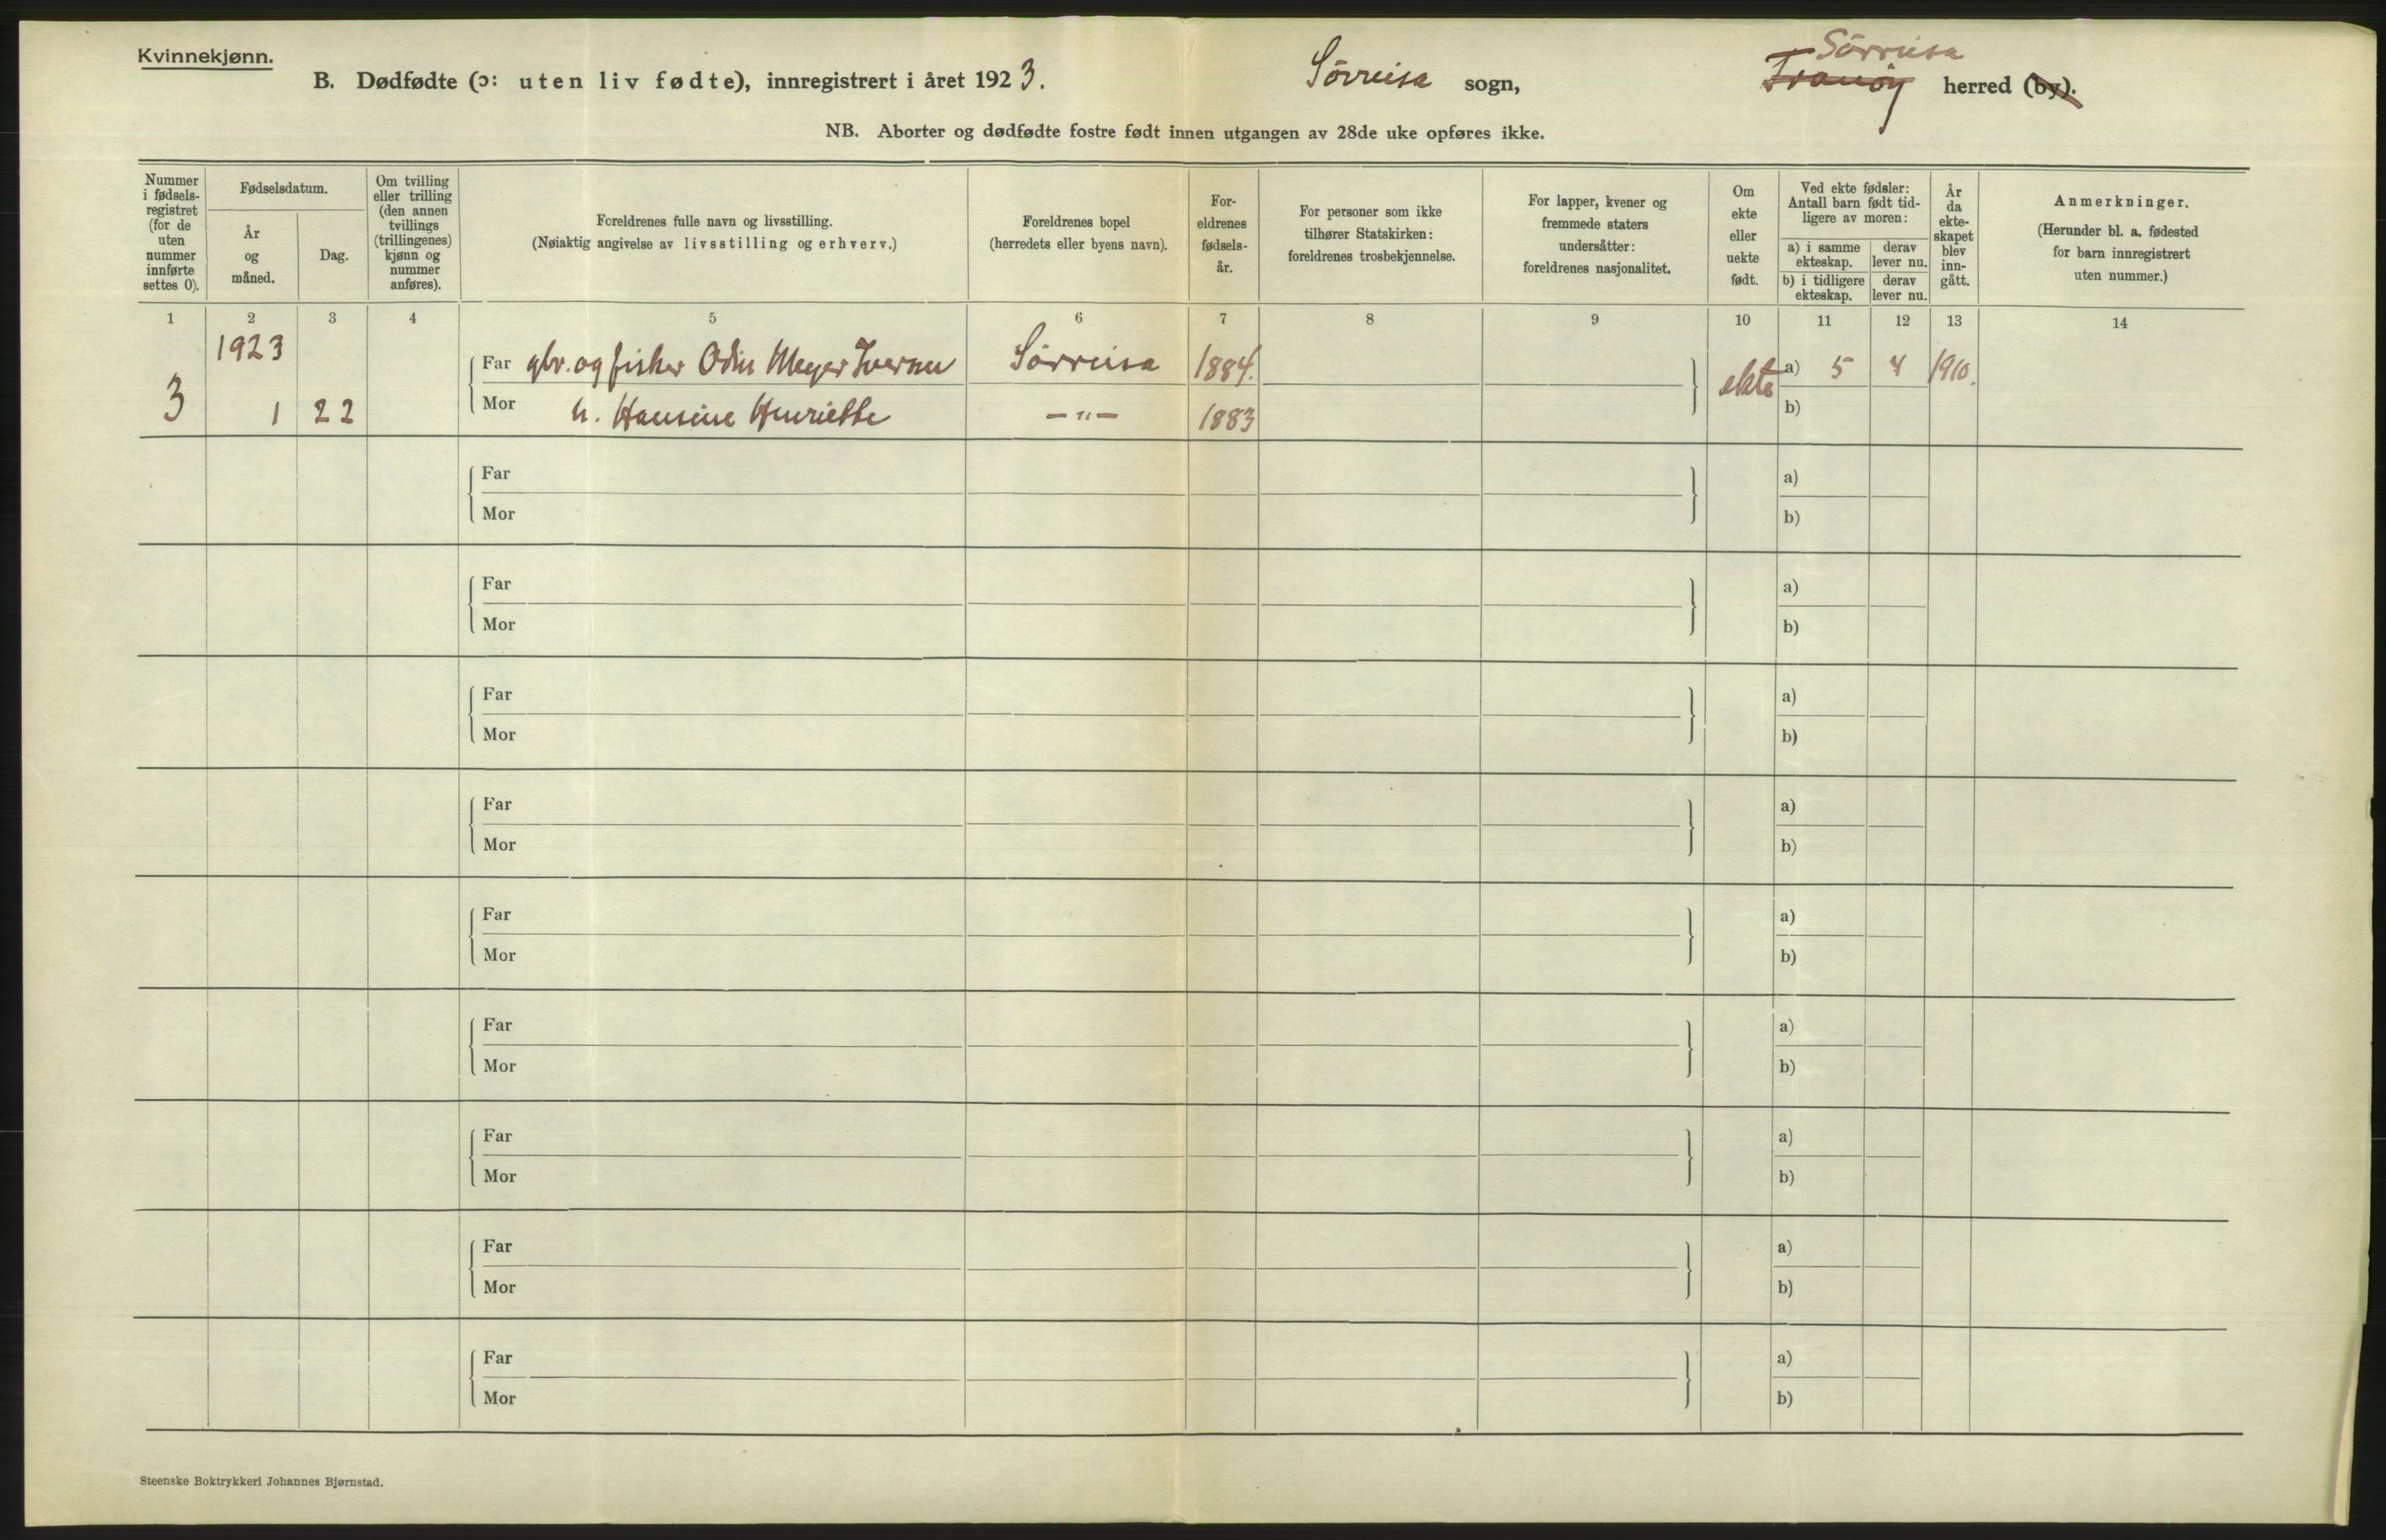 Kvinnekjønn.
B. Dødfødte (ɔ: uten liv fødte), innregistrert i året 1923. Sörreisa sogn, Tranöy Sörreisa herred (by).
NB. Aborter og dødfødte fostre født innen utgangen av 28de uke opføres ikke.
Nummer i fødsels-registret (for de uten nummer innførte settes 0).
Fødselsdatum.
År og måned.
Dag.
Om tvilling eller trilling (den annen tvillings (trillingenes) kjønn og nummer anføres).
Foreldrenes fulle navn og livsstilling.
(Nøiaktig angivelse av livsstilling og erhverv.)
Foreldrenes bopel
(herredets eller byens navn).
For-eldrenes fødsels-år.
For personer som ikke tilhører Statskirken: foreldrenes trosbekjennelse.
For lapper, kvener og fremmede staters undersåtter: foreldrenes nasjonalitet.
Om ekte eller uekte født.
Ved ekte fødsler: Antall barn født tid-ligere av moren:
a) i samme ekteskap. derav lever nu.
b) i tidligere ekteskap. derav lever nu.
År da ekte-skapet blev inn-gått.
Anmerkninger.
(Herunder bl. a. fødested for barn innregistrert uten nummer.)
1 2 3 4 5 6 7 8 9 10 11 12 13 14
1923
Far gbr. og fisker Odin Meyer Iversen Sörreisa 1884. ekte a) 5 4 1910.
3 1 22 Mor h. Hansine Henriette –"– 1883 b)
Far a)
Mor b)
Far a)
Mor b)
Far a)
Mor b)
Far a)
Mor b)
Far a)
Mor b)
Far a)
Mor b)
Far a)
Mor b)
Far a)
Mor b)
Far a)
Mor b)
Steenske Boktrykkeri Johannes Bjørnstad.